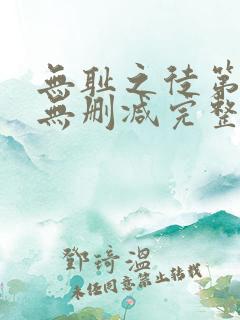 無耻之徒第
無删减完整
鄧琦溫
未经同意禁止转载